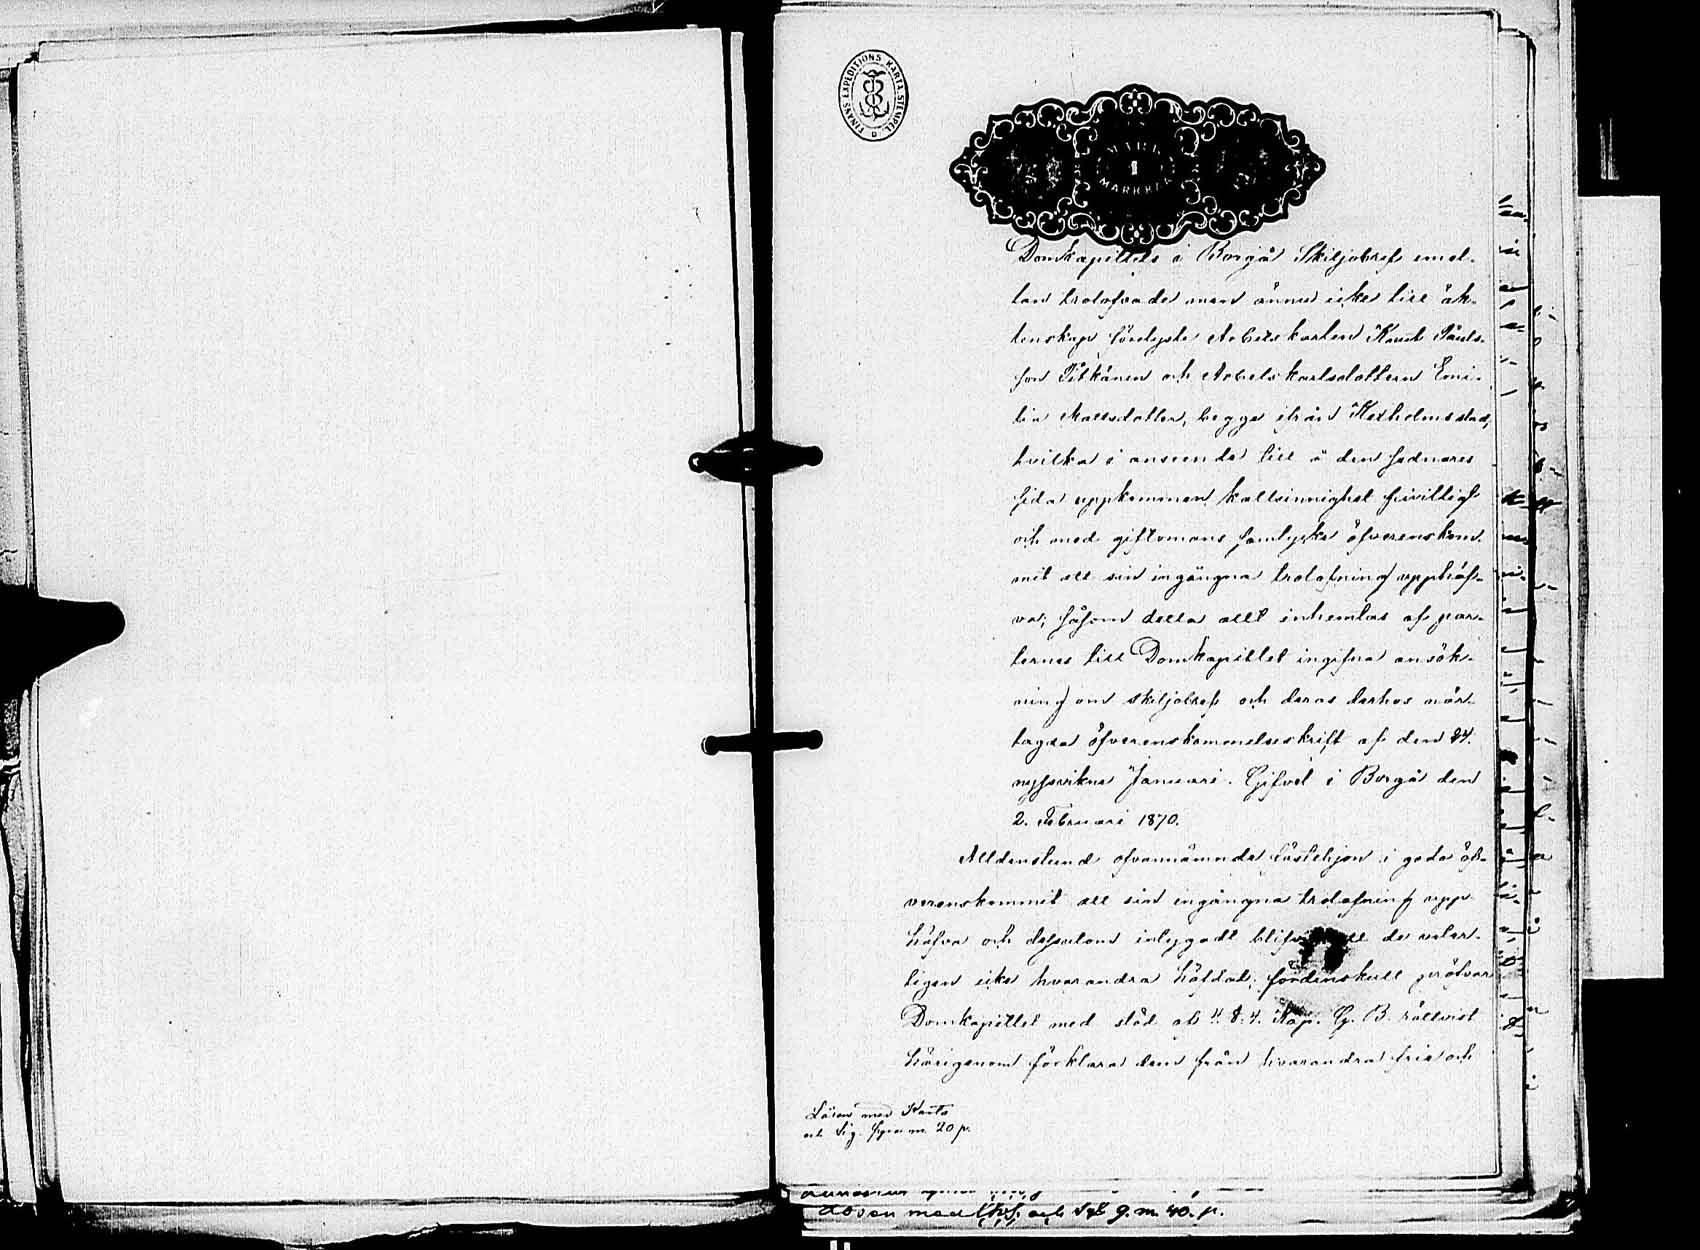 FINANS EXPEDITIONS KARTA. STEMPEL
MARK
1
MARKKA
Domkapitlets i Borgå Skiljobref emel-
lan trolofvade men ännu icke till äk-
tenskap förenade Arbetskarlen Knut Påuls-
son Pitkänen och Arbetskarlsdottern Emi-
lia Mattsdotter, begge ifrån Kexholms stad,
hvilka i anseende till å den sednares
sida uppkommen kallsinnighet frivilligt
och med giftomans samtycke öfverenskom-
mit att sin ingångna trolofning upphäf-
va; såsom detta allt inhemtas af par-
ternas till Domkapitlet ingifna ansök-
ning om skiljobref och deras derhos när-
lagda öfverenskommelseskrift af den 24.
nyssvikne Januari. Gifvet i Borgå den
2. Februari 1870.
Alldenstund ofvannämnda fästehjon i godo öf-
verenskommit att sin ingångna trolofning upp-
häfva och dessutom intygadt blifvit att de veter-
ligen icke hvarandra häfdat; fördenskull pröfvar
Domkapitlet med stöd af 4. §. 4. Kap. G. B. rättvist
härigenom förklara dem från hvarandra fria och
Lösen med Karta
och Sig. fyra m. 20 p.
Lösen med och Sig. 9. m. 40. p.